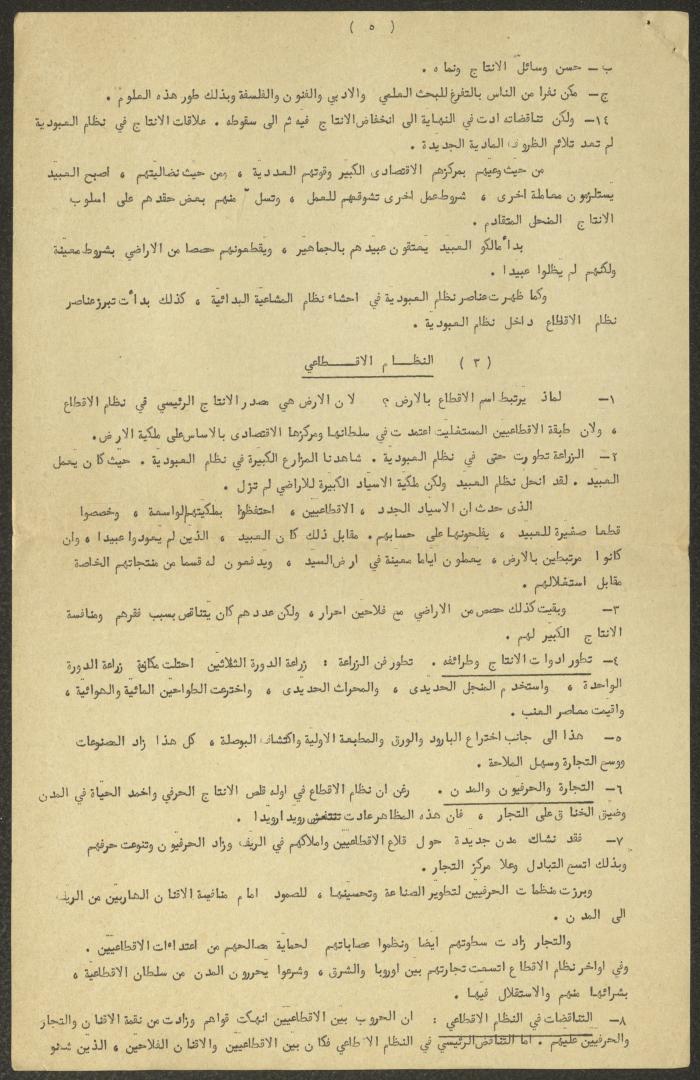 ( ٥ )
ب – حسن وسائل الانتاج ونماه .
ج – مكن نفرا من الناس بالتفرغ للبحث العلمي والادبي والفنون والفلسفة وبذلك طور هذه العلوم .
١٤ – ولكن تناقضاته ادت في النهاية الى انخفاض الانتاج فيه ثم الى سقوطه . علاقات الانتاج في نظام العبودية
لم تعد تلائم الظروف المادية الجديدة .
من حيث وعيهم بمركزهم الاقتصادى الكبير وقوتهم العددية ، ومن حيث نضاليتهم ، اصبح العبيد
يستلزمون معاملة اخرى ، شروط عمل اخرى تشوقهم للعمل ، وتسل منهم بعض حقدهم على اسلوب
الانتاج المنحل المتقادم .
بدأ مالكو العبيد يعتقون عبيدهم بالجماهير ، ويقطعونهم حصصا من الاراضي بشروط معينة
ولكنهم لم يظلوا عبيدا .
وكما ظهرت عناصر نظام العبودية في احشاء نظام المشاعية البدائية ، كذلك بدأت تبرز عناصر
نظام الاقطاع داخل نظام العبودية .
( ٣ ) النظــام الاقــطاعي
١ – لماذ يرتبط اسم الاقطاع بالارض ؟ لان الارض هي مصدر الانتاج الرئيسي في نظام الاقطاع
، ولان طبقة الاقطاعيين المستغليت اعتمدت في سلطانها ومركزها الاقتصادى بالاساس على ملكية الارض .
٢ – الزراعة تطورت حتى في نظام العبودية . شاهدنا المزارع الكبيرة في نظام العبودية . حيث كان يعمل
العبيد . لقد انحل نظام العبيد ولكن ملكية الاسياد الكبيرة للاراضي لم تزل .
الذى حدث ان الاسياد الجدد ، الاقطاعيين ، احتفظوا بملكيتهم الواسعة ، وخصصوا
قطعا صغيرة للعبيد ، يفلحونها على حسابهم . مقابل ذلك كان العبيد ، الذين لم يعودوا عبيدا ، وان
كانوا مرتبطين بالارض ، يعملون اياما معينة في ارض السيد ، ويدفعون له قسما من منتجاتهم الخاصة
مقابل استغلالهم .
٣ – وبقيت كذلك حصص من الاراضي مع فلاحين احرار ، ولكن عددهم كان يتناقص بسبب فقرهم ومنافسة
الانتاج الكبير لهم .
٤ – تطور ادوات الانتاج وطرائقه . تطور فن الزراعة : زراعة الدورة الثلاثين احتلت مكانة زراعة الدورة
الواحدة ، واستخدم المنجل الحديدى ، والمحراث الحديدى ، واخترعت الطواحين المائية والهوائية ،
واقيمت معاصر العنب .
٥ – هذا الى جانب اختراع البارود والورق والمطبعة الاولية واكتشاف البوصلة ، كل هذا زاد الصنوعات
ووسع التجارة وسهل الملاحة .
٦ – التجارة والحرفيون والمدن . رغن ان نظام الاقطاع في اوله قلص الانتاج الحرفي واخمد الحياة في المدن
وضيق الخناق على التجار ، فان هذه المظاهر عادت تنتعش رويدا رويدا .
٧ – فقد نشات مدن جديدة حول قلاع الاقطاعيين واملاكهم في الريف وزاد الحرفيون وتنوعت حرفهم
وبذلك اتسع التبادل وعلا مركز التجار .
وبرزت منظمات الحرفيين لتطوير الصناعة وتحسينها ، للصمود امام منافسة الاقنان الهاربين من الريف
الى المدن .
والتجار زادت سطوتهم ايضا ونظموا عصاباتهم لحماية مصالحهم من اعتداءات الاقطاعيين .
وفي اواخر نظام الاقطاع اتسعت تجارتهم بين اوروبا والشرق ، وشرعوا يحررون المدن من سلطان الاقطاعية ،
بشرائها منهم والاستقلال فيها .
٨ – التناقضات في النظام الاقطاعي : ان الحروب بين الاقطاعيين انهكت قواهم وزادت من نقمة الاقنان والتجار
والحرفيين عليهم . اما التناقض الرئيسي في النظام الاقطاعي فكان بين الاقطاعيين والاقنان الفلاحين ، الذين